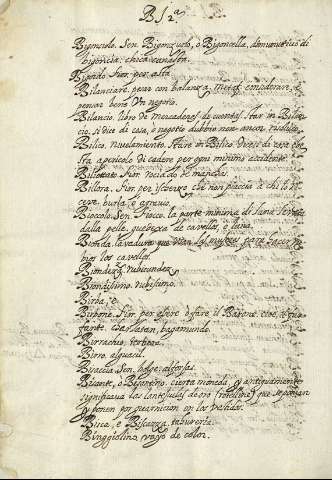 B I 2ª
Bigonzolo. Sen. Bigonzuolo, o Bigoncella, diminutivo di
bigoncia: chica canasta.
Bigordo. Fior. per asta.
Bilanciare. pesar con balanza, metaf. considerare, e
pensar bene Un negotio.
Bilancio. libro de mercaderes de cuentas. Star in Bilan-
cio, si dice di cosa, o negotio dubbio non ancor risoluto.
Bilico. nivelamiento. Stare in Bilico. dicesi di cosa che
sta a pericolo di cadere per ogni minimo accidente.
Billottato Fior. rociado de manchas.
Billora. Fior. per ischerzo che non piaccia a chi lo ri-
ceve, burla, o
Bioccolo. Sen. Fiocco. la parte minima di lana
dalla pelle, de cavellos, o lana.
Bionda. lavadura que usan las mugeres para hacer ru-
bios los cavellos.
Biondezza. rubicundez
Biondissimo. rubisimo.
Birba, e
Birbone. Fior. per esere o fare il Barone. cioè, il
fante, charlatan, bagamundo.
Birrachio. terbeza.
Birro. alguacil.
Bisaccia. Sen. bolge: alforjas.
Bisante, o Bisantino. cierta moneda, y antiguamente
significava las lantejuelas de oro (rotelline) que se ponian
y ponen por guarnicion en los vestidos.
Bisca, e Biscazza. tablureria.
Bisuggiolino. roxo de color.